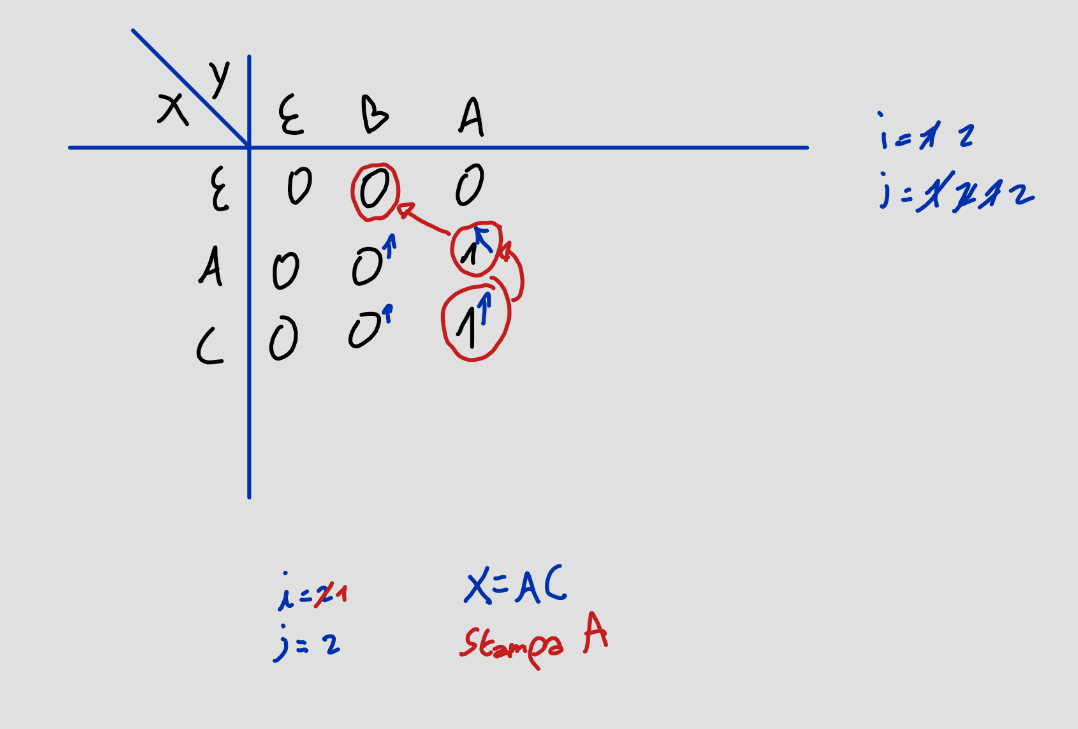 X Y ε B A
ε 0 0 0
A 0 0↑ 1↖
C 0 0↑ 1↑
i = 1 2
j = 1 2 1 2
i = 2 1
j = 2
X = AC
Stampa A